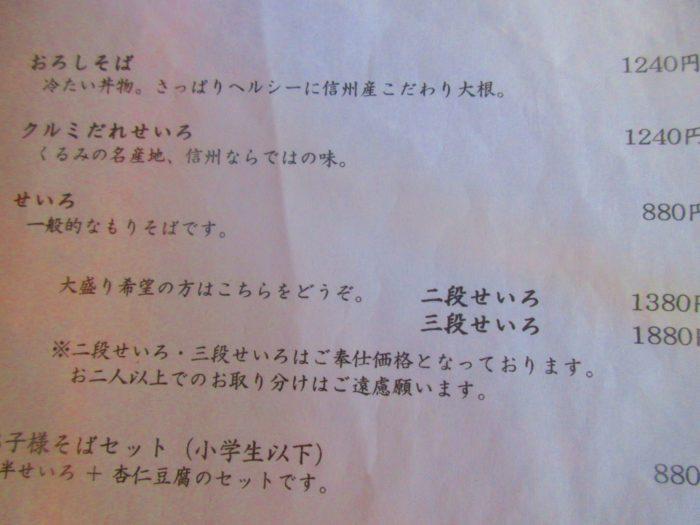 おろしそば 1240円
冷たい丼物。さっぱりヘルシーに信州産こだわり大根。
クルミだれせいろ 1240円
くるみの名産地、信州ならではの味。
せいろ 880円
一般的なもりそばです。
大盛り希望の方はこちらをどうぞ。 二段せいろ 1380円
三段せいろ 1880円
※二段せいろ・三段せいろはご奉仕価格となっております。
お二人以上でのお取り分けはご遠慮願います。
子様そばセット（小学生以下）
半せいろ + 杏仁豆腐のセットです。 880